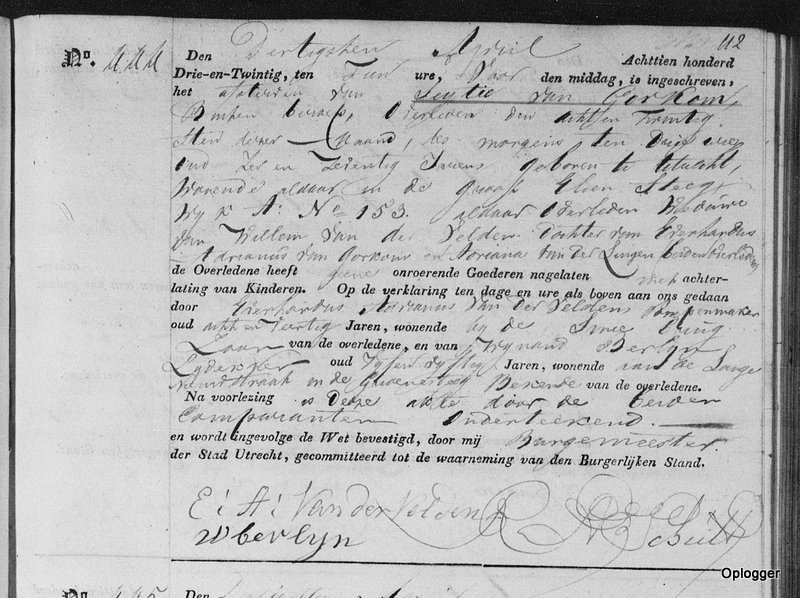 112
No. 444 Den Dertigsten April Achttien honderd
Drie-en-Twintig, ten Tien ure, Voor den middag, is ingeschreven,
het afsterven van van Gorkom,
Buiten beroep, Overleden den acht en Twintig
dezer Maand, des morgens ten Drie ure
oud Zes en Zeventig Jaren geboren te Utrecht,
Wonende aldaar in de Steeg
Wyk A: No 153. aldaar Overleden Weduwe
van Willem van der Velden Dochter van Everhardus
Adrianus van Gorkom en Adriana van der Lingen beiden Overleden
de Overledene heeft geene onroerende Goederen nagelaten met achter-
lating van Kinderen. Op de verklaring ten dage en ure als boven aan ons gedaan
door Everhardus Adrianus van der Velden Pompenmaker
oud acht en Veertig Jaren, wonende by de Smee Brug
Zoon van de overledene, en van Wynand Berlyn
oud Vyf en Jaren, wonende aan de Lange
Nieuwstraat en de Bekende van de overledene.
Na voorlezing is Deeze akte door de beiden
Comparanten Onderteekend.
en wordt ingevolge de Wet bevestigd, door mij Burgemeester
der Stad Utrecht, gecommitteerd tot de waarneming van den Burgerlijken Stand.
E: A: Van der Velden
W berlyn
No. 445 Den
Oplogger